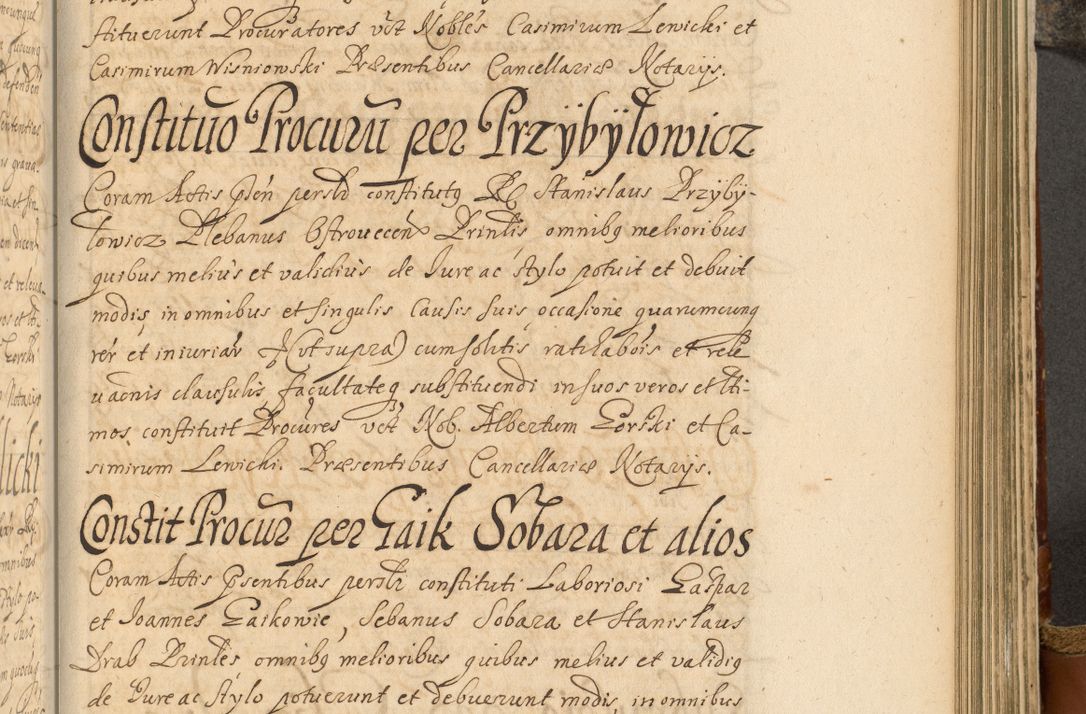 stituerunt Procuratores vct Nobles Casimirum Lewicki et
Casimirum Wisniowski Præsentibus Cancellariæ Notarijs.
Constituo Procurū per Przÿbÿłowicz
Coram Actis psen persłr constitutq R Stanislaus Przÿbÿ-
łowicz Plebanus Ostrouecen Prinlis omnibq melioribus
quibus melius et validius de Iure ac stylo potuit et debuit
modis in omnibus et singulis Causis suis occasione quarumcunq
rer et iniuriar (vt supra) cum solitis ratihabois et rele
uaonis clausulis, facultateq substituendi in suos veros et Ltti-
mos constituit Procures vct Nob. Albertum Gorski et Ca-
simirum Lewicki. Præsentibus Cancellariæ Notarijs.
Constit Procur per Gaik Sobara et alios
Coram Actis psentibus persłr constituti Laboriosi Gaspar
et Joannes Gaikowie, Sebanus Sobara et Stanislaus
Drab Prinles omnibq melioribus quibus melius et validiq
de Iure ac stylo potuerunt et debuerunt modis in omnibus